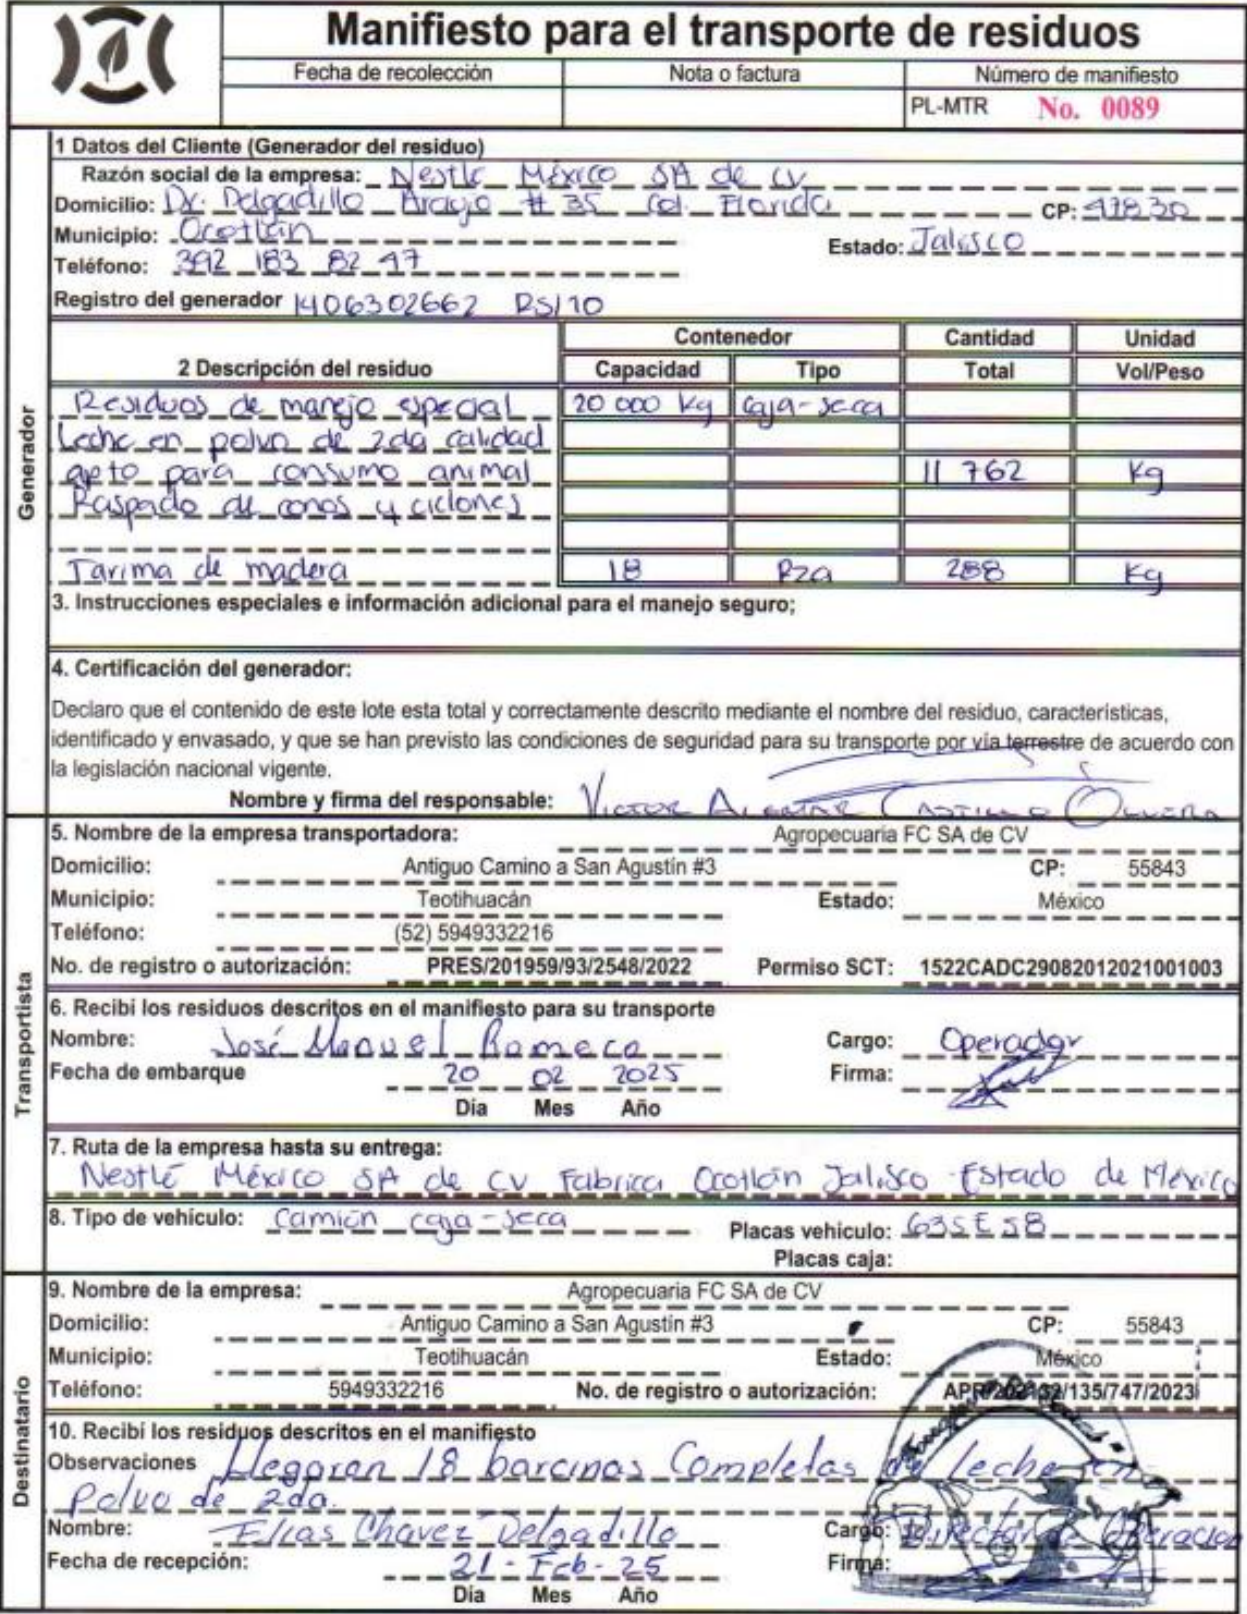 Manifiesto para el transporte de residuos
Fecha de recolección Nota o factura Número de manifiesto
PL-MTR No. 0089
1 Datos del Cliente (Generador del residuo)
Razón social de la empresa: Nestlé México SA de CV
Domicilio: Dr. Delgadillo Araujo # 35 Col. Florida CP: 47830
Municipio: Ocotlán Estado: Jalisco
Teléfono: 392 183 82 47
Registro del generador 1406302662 RS/10
Contenedor Cantidad Unidad
2 Descripción del residuo Capacidad Tipo Total Vol/Peso
Residuos de manejo especial 20 000 Kg Caja-seca
Leche en polvo de 2da calidad
apto para consumo animal 11 762 Kg
Raspado de conos y ciclones
Tarima de madera 18 Pza 288 Kg
3. Instrucciones especiales e información adicional para el manejo seguro;
4. Certificación del generador:
Declaro que el contenido de este lote esta total y correctamente descrito mediante el nombre del residuo, características,
identificado y envasado, y que se han previsto las condiciones de seguridad para su transporte por vía terrestre de acuerdo con
la legislación nacional vigente.
Nombre y firma del responsable: Victor Castillo Olvera
5. Nombre de la empresa transportadora: Agropecuaria FC SA de CV
Domicilio: Antiguo Camino a San Agustín #3 CP: 55843
Municipio: Teotihuacán Estado: México
Teléfono: (52) 5949332216
No. de registro o autorización: PRES/201959/93/2548/2022 Permiso SCT: 1522CADC29082012021001003
6. Recibí los residuos descritos en el manifiesto para su transporte
Nombre: José Manuel Romero Cargo: Operador
Fecha de embarque 20 02 2025 Firma:
Día Mes Año
7. Ruta de la empresa hasta su entrega:
Nestlé México SA de CV Fabrica Ocotlán Jalisco - Estado de México
8. Tipo de vehículo: Camión caja-seca Placas vehiculo: 635E5B
Placas caja:
9. Nombre de la empresa: Agropecuaria FC SA de CV
Domicilio: Antiguo Camino a San Agustín #3 CP: 55843
Municipio: Teotihuacán Estado: México
Teléfono: 5949332216 No. de registro o autorización: APR/202132/135/747/2023
10. Recibí los residuos descritos en el manifiesto
Observaciones Llegaron 18 barcinas Completas de leche en
Polvo de 2da.
Nombre: Elias Chavez Delgadillo Cargo: Director de Operacion
Fecha de recepción: 21 - Feb - 25 Firma:
Día Mes Año
Generador
Transportista
Destinatario